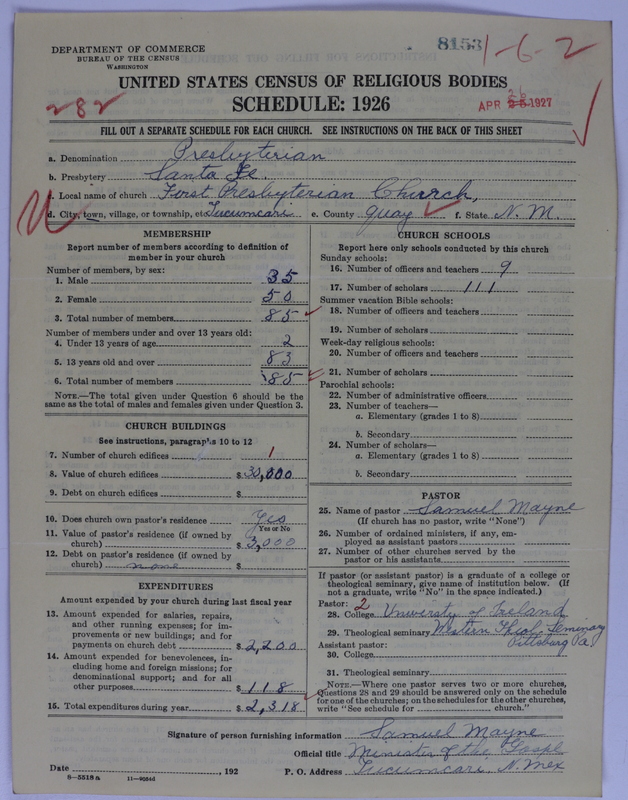 DEPARTMENT OF COMMERCE
BUREAU OF THE CENSUS
WASHINGTON
8153
1-6-2
UNITED STATES CENSUS OF RELIGIOUS BODIES
SCHEDULE: 1926
282
APR 26 1927
FILL OUT A SEPARATE SCHEDULE FOR EACH CHURCH. SEE INSTRUCTIONS ON THE BACK OF THIS SHEET
a. Denomination Presbyterian
b. Presbytery Santa Fe.
c. Local name of church First Presbyterian Church,
d. City, town, village, or township, etc Tucumcari e. County Quay f. State N. M.
MEMBERSHIP
Report number of members according to definition of
member in your church
Number of members, by sex:
1. Male 35
2. Female 50
3. Total number of members 85
Number of members under and over 13 years old:
4. Under 13 years of age 2
5. 13 years old and over 83
6. Total number of members 85
NOTE.—The total given under Question 6 should be
same as the total of males and females given under Question 3.
CHURCH BUILDINGS
See instructions, paragraphs 10 to 12
7. Number of church edifices 1
8. Value of church edifices $ 30,000
9. Debt on church edifices $
10. Does church own pastor's residence Yes
Yes or No
11. Value of pastor's residence (if owned by
church) $ 3,000
12. Debt on pastor's residence (if owned by
church) none $
EXPENDITURES
Amount expended by your church during last fiscal year
13. Amount expended for salaries, repairs,
and other running expenses; for im-
provements or new buildings; and for
payments on church debt $ 2,200
14. Amount expended for benevolences, in-
cluding home and foreign missions; for
denominational support; and for all
other purposes $ 118
15. Total expenditures during year $ 2,318
CHURCH SCHOOLS
Report here only schools conducted by this church
Sunday schools:
16. Number of officers and teachers 9
17. Number of scholars 111
Summer vacation Bible schools:
18. Number of officers and teachers
19. Number of scholars
Week-day religious schools:
20. Number of officers and teachers
21. Number of scholars
Parochial schools:
22. Number of administrative officers
23. Number of teachers—
a. Elementary (grades 1 to 8)
b. Secondary
24. Number of scholars—
a. Elementary (grades 1 to 8)
b. Secondary
PASTOR
25. Name of pastor Samuel Mayne
(If church has no pastor, write "None")
26. Number of ordained ministers, if any, em-
ployed as assistant pastors
27. Number of other churches served by the
pastor or his assistants
If pastor (or assistant pastor) is a graduate of a college or
theological seminary, give name of institution below. (If
not a graduate, write "No" in the space indicated.)
Pastor: 2
28. College University of Ireland
29. Theological seminary Western Theol. Seminary
Pittsburg Pa.
Assistant pastor:
30. College
31. Theological seminary
NOTE.—Where one pastor serves two or more churches,
Questions 28 and 29 should be answered only on the schedule
for one of the churches; on the schedules for the other churches,
write "See schedule for church."
Signature of person furnishing information Samuel Mayne
Official title Minister of the Gospel
Date , 192 P. O. Address Tucumcari, N. Mex
8-5518a